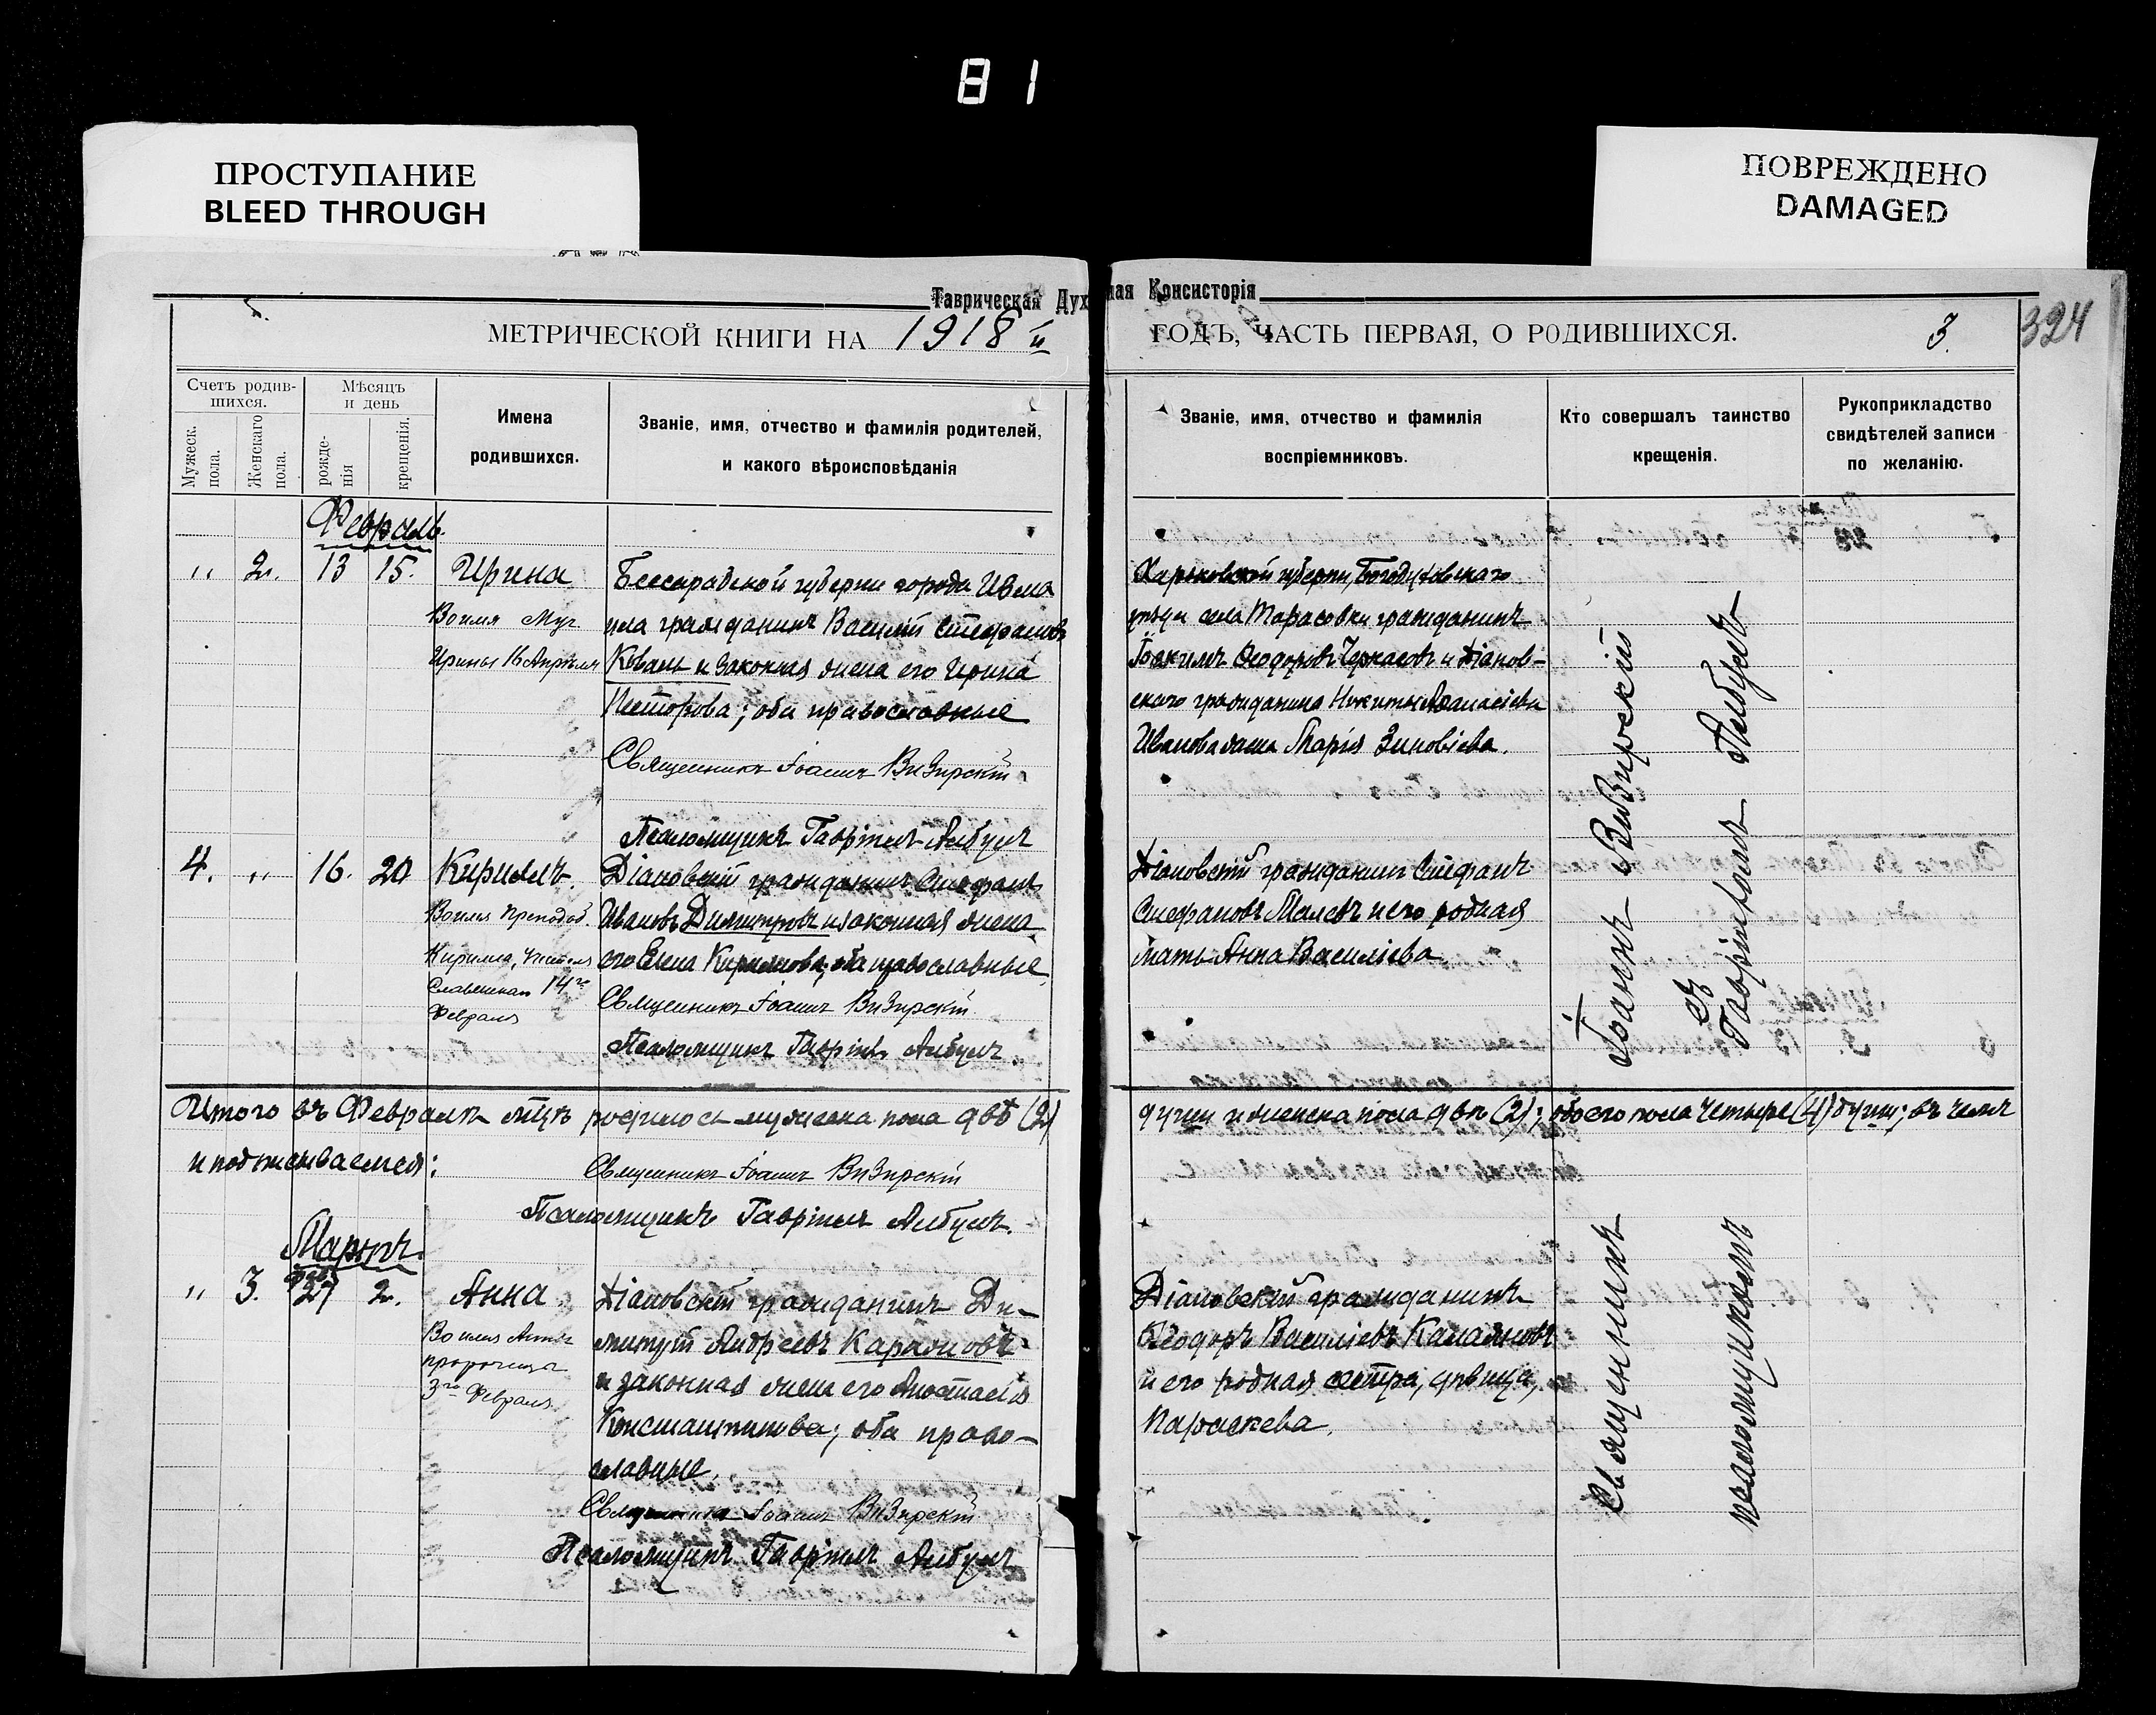 81
ПРОСТУПАНИЕ
BLEED THROUGH
ПОВРЕЖДЕНО
DAMAGED
Таврическая Духовная Консисторія
МЕТРИЧЕСКОЙ КНИГИ НА 1918й ГОДЪ, ЧАСТЬ ПЕРВАЯ, О РОДИВШИХСЯ.
3.
324
Счетъ родив-
шихся.
Мужеск.
пола.
Женскаго
пола.
Мѣсяцъ
и день
рожде-
нія
крещенія.
Имена
родившихся.
Званіе, имя, отчество и фамилія родителей,
и какого вѣроисповѣданія
Званіе, имя, отчество и фамилія
воспріемниковъ.
Кто совершалъ таинство
крещенія.
Рукоприкладство
свидѣтелей записи
по желанію.
Февраль.
„ 2. 13 15. Ирина
Во имя Муч.
Ирины 16 Апрѣля
Бессарабской губерни города Изма
ила гражданинъ Василій Стефановъ
Коваль и законная жена его Ирина
Несторова; оба православные
Священникъ Іоаннъ Визирскій
Псаломщикъ Гавріилъ Албулъ
Харьковской губерни, Богодуховскаго
уѣзда села Тарасовки гражданинъ
Іоакимъ Ѳеодоровъ Черкасовъ и Діанов-
скаго гражданина Никиты Аѳанасіева
Иванова жена Марія Зиновіева.
4. „ 16. 20 Кириллъ.
Во имя Преподоб.
Кирилла, Учителя
Славянскаго 14го
Февраля
Діановскій гражданинъ Стефанъ
Ивановъ Димитровъ и законная жена
его Елена Кириллова; оба православные.
Священникъ Іоаннъ Визирскій
Псаломщикъ Гавріилъ Албулъ
Діановскій гражданинъ Стефанъ
Стефановъ Малевъ и его родная
мать Анна Василіева
Итого въ Февралѣ мцѣ родилось мужеска пола двѣ (2)
души и женска пола двѣ (2); обоего пола четыре (4) души; въ чемъ
и подписываемся:
Священникъ Іоаннъ Визирскій
Псаломщикъ Гавріилъ Албулъ.
Мартъ.
„ 3. Фев. 27 2. Анна.
Во имя Анны
пророчицы
3го Февраля
Діановскій гражданинъ Ди-
митрій Андреевъ
и законная жена его Анастасія
Константинова; оба право-
славные.
Священникъ Іоаннъ Визирскій
Псаломщикъ Гавріилъ Албулъ
Діановскій гражданинъ
Ѳеодоръ Василіевъ
и его родная сестра, дѣвица,
Параскева.
Священникъ Іоаннъ Визирскій
съ
псаломщикомъ Гавріиломъ Албулъ